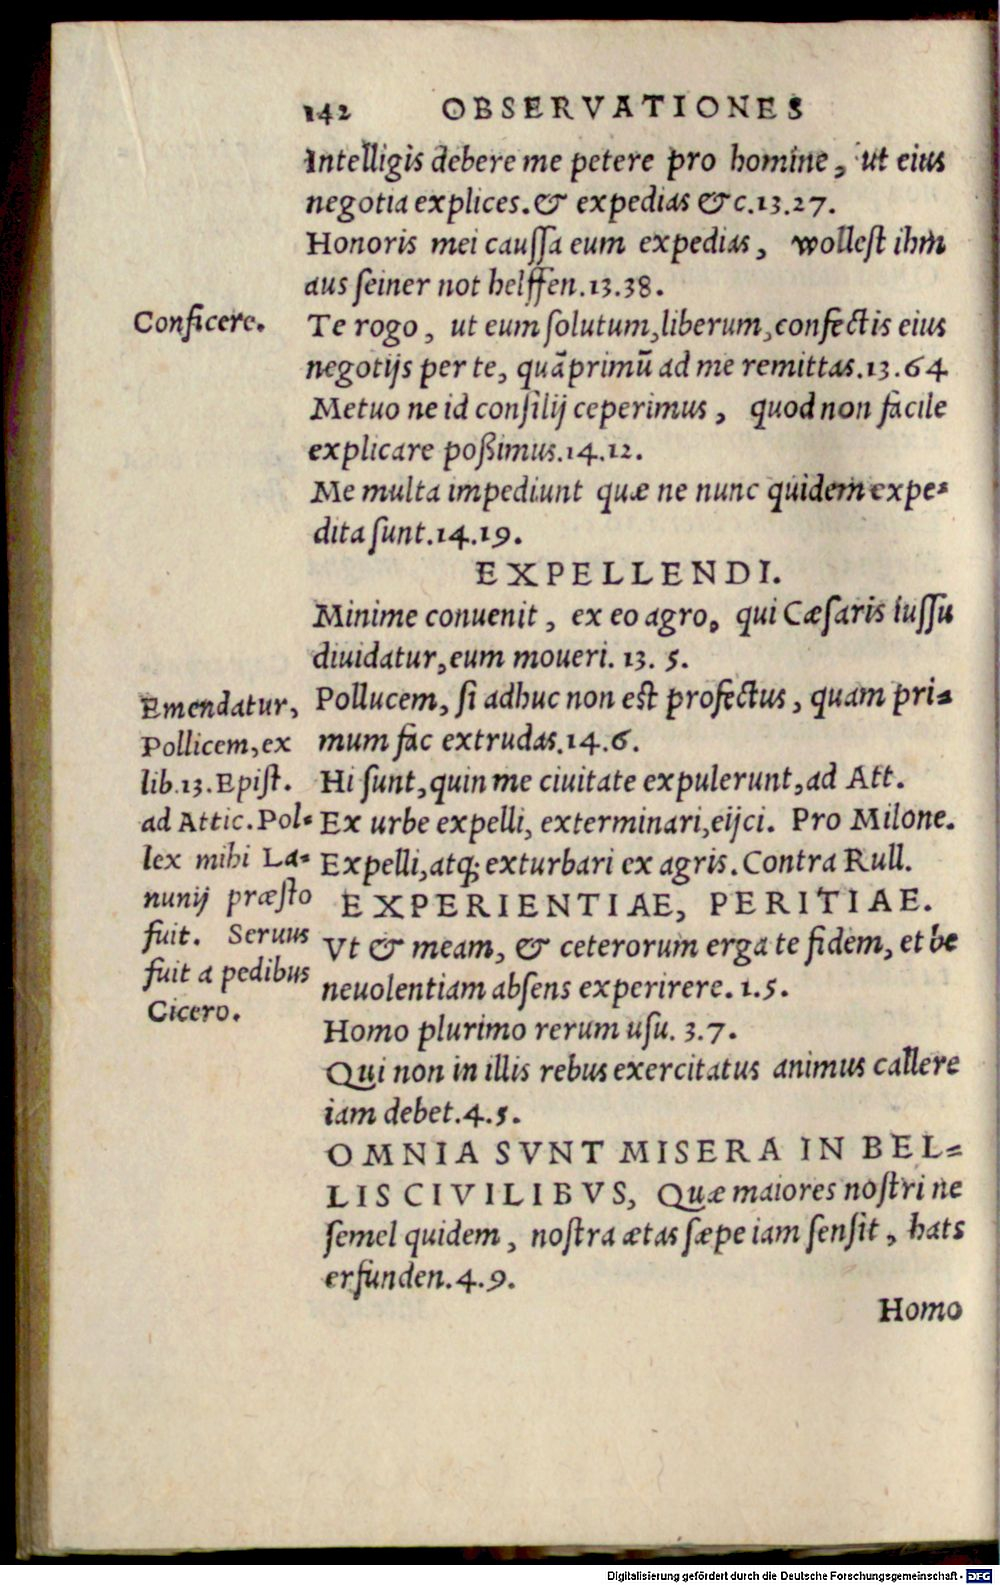 142 OBSERVATIONES
Intelligis debere me petere pro homine, ut eius
negotia explices. & expedias &c. 13.27.
Honoris mei caussa eum expedias, wollest ihm
aus seiner not helffen. 13.38.
Conficere.
Te rogo, ut eum solutum, liberum, confectis eius
negotijs per te, quãprimũ ad me remittas. 13.64
Metuo ne id consilij ceperimus, quod non facile
explicare poßimus. 14.12.
Me multa impediunt quæ ne nunc quidem expe=
dita sunt. 14.19.
EXPELLENDI.
Minime conuenit, ex eo agro, qui Cæsaris iussu
diuidatur, eum moueri. 13. 5.
Pollucem, si adhuc non est profectus, quam pri=
mum fac extrudas. 14.6.
Hi sunt, quin me ciuitate expulerunt, ad Att.
Ex urbe expelli, exterminari, eijci. Pro Milone.
Expelli, atq; exturbari ex agris. Contra Rull.
Emendatur,
Pollicem, ex
lib. 13. Epist.
ad Attic. Pol=
lex mihi La=
nunij præsto
fuit. Seruus
fuit a pedibus
Cicero.
EXPERIENTIAE, PERITIAE.
Vt & meam, & ceterorum erga te fidem, et be
neuolentiam absens experirere. 1.5.
Homo plurimo rerum usu. 3.7.
Qui non in illis rebus exercitatus animus callere
iam debet. 4.5.
OMNIA SVNT MISERA IN BEL=
LIS CIVILIBVS, Quæ maiores nostri ne
semel quidem, nostra ætas sæpe iam sensit, hats
erfunden. 4.9.
Homo
Digitalisierung gefördert durch die Deutsche Forschungsgemeinschaft - DFG